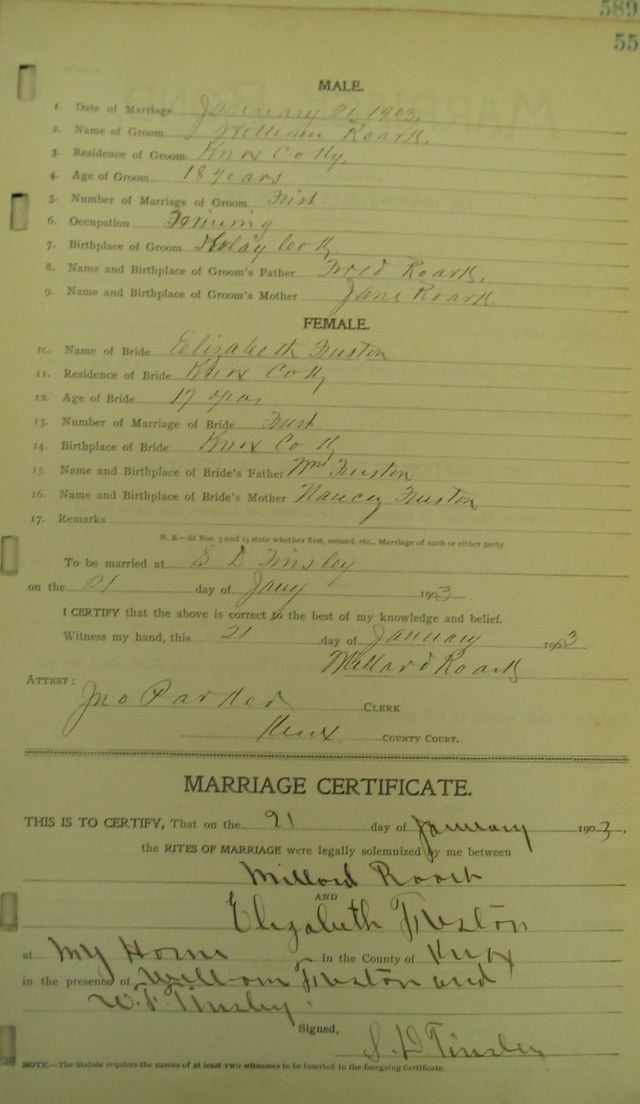 589
55
MALE.
1. Date of Marriage January 21 1903.
2. Name of Groom William Roark.
3. Residence of Groom Knox Co Ky,
4. Age of Groom 18 years
5. Number of Marriage of Groom First
6. Occupation Farming
7. Birthplace of Groom Clay Co Ky
8. Name and Birthplace of Groom's Father Fred Roark.
9. Name and Birthplace of Groom's Mother Jane Roark
FEMALE.
10. Name of Bride Elizabeth Fuston
11. Residence of Bride Knox Co Ky
12. Age of Bride 17 years
13. Number of Marriage of Bride First
14. Birthplace of Bride Knox Co Ky
15. Name and Birthplace of Bride's Father Wm Fuston
16. Name and Birthplace of Bride's Mother Nancy Fuston
17. Remarks
N. B.—At Nos. 5 and 13 state whether first, second, etc., Marriage of each or either party.
To be married at S D Tinsley
on the 21 day of Jany 1903
I CERTIFY that the above is correct to the best of my knowledge and belief.
Witness my hand, this 21 day of January 1903
Millard Roark
ATTEST:
Jno Parker CLERK
Knox COUNTY COURT.
MARRIAGE CERTIFICATE.
THIS IS TO CERTIFY, That on the 21 day of January 1903,
the RITES OF MARRIAGE were legally solemnized by me between
Millard Roark
AND
Elizabeth Fuston
at My Home in the County of Knox
in the presence of William Fuston and
W. F. Tinsley.
Signed,
S. D Tinsley
NOTE.—The Statute requires the names of at least TWO witnesses to be inserted in the foregoing Certificate.